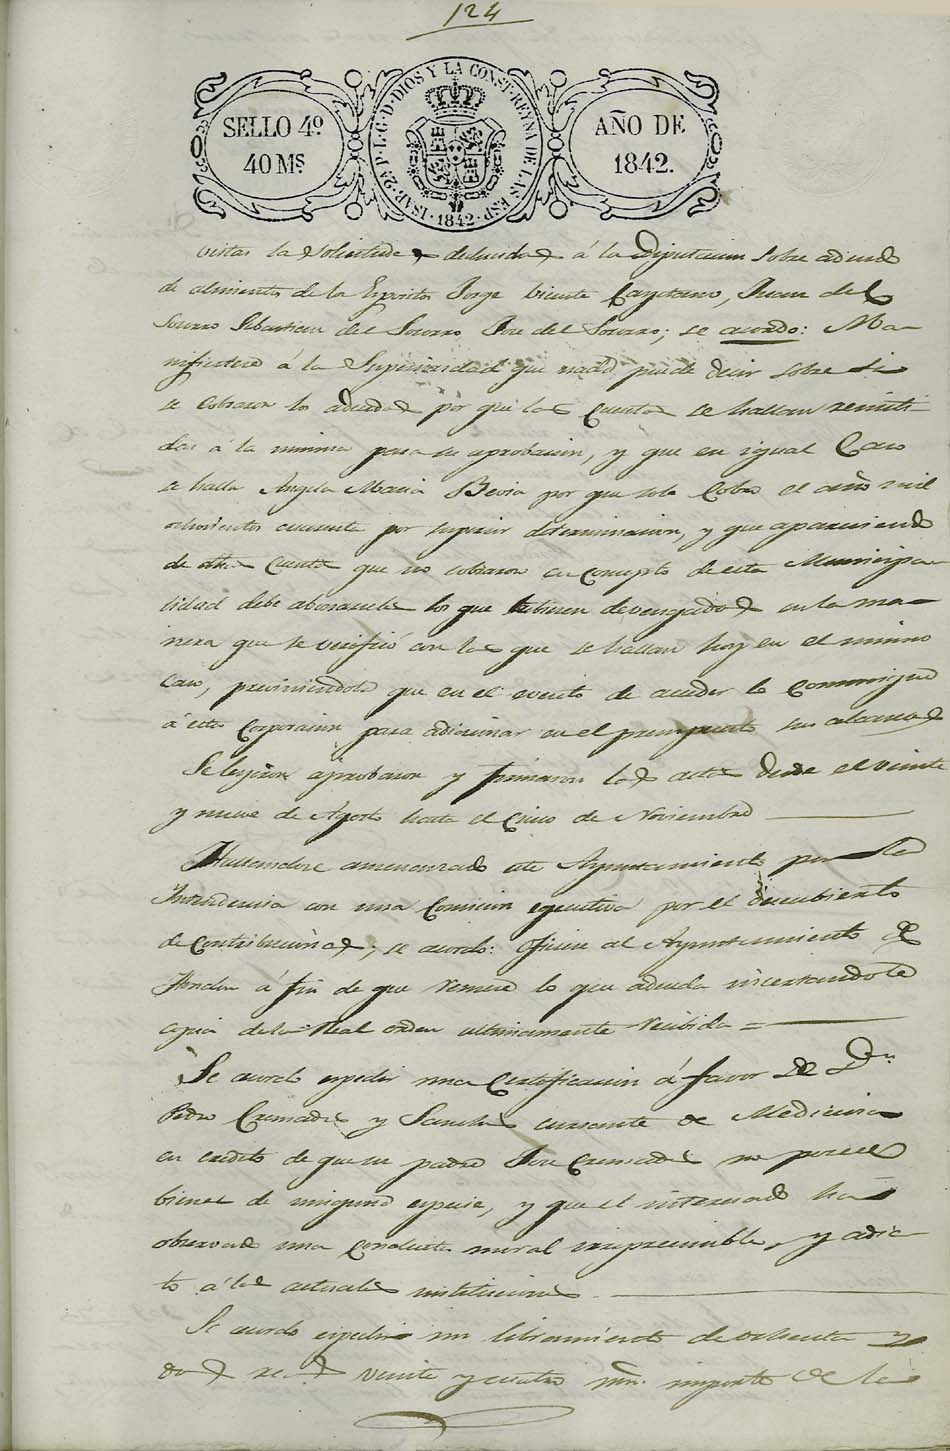 124
SELLO 4º
40 Ms.
ISAB. 2ª P. L. G. D. DIOS Y LA CONST. REYNA DE LAS ESP. 1842
AÑO DE
1842.
vistas las solicitudes deducidas á la Diputacion sobre adeudo
de alimentos de los Espositos Jorge Vicente Cayetano, Juan del
Socorro Sebastian del Socorro Jose del Socorro; se acordó: Ma-
nifiestese á la Superioridad que nada puede decir sobre si
se cobraron los adeudos por que las Cuentas se hallan remiti-
das á la misma para su aprobacion, y que en igual Caso
se halla Angela Maria Bevia por que solo Cobró el año mil
ochocientos cuarenta por superior determinacion, y que apareciendo
de dhas Cuentas que no cobraron en concepto de esta Municipa-
lidad debe abonarsele los que tubiesen devengados en la ma-
nera que se verificó con las que se hallan hoy en el mismo
Caso, previniendole que en el evento de acceder lo Comunique
á esta Corporacion para adicionar en el presupuesto sus alcances
Se leyeron aprobaron y firmaron las actas desde el veinte
y nueve de Agosto hasta el Cinco de Noviembre
Hallandose amenazado este Ayuntamiento por la
Intendencia con una Comision egecutiva por el descubierto
de Contribuciones; se acordó: Oficiese al Ayuntamiento de
Hondon á fin de que remese lo que adeuda insertandole
copia de la Real orden ultimamente recibida =
Se acordó espedir una Certificacion á favor de Dn.
Pedro Cremades y Sanchez cursante de Medicina
en credito de que su padre Jose Cremades no posee
bienes de ninguna especie, y que el interesado ha
observado una Conducta moral irreprensible, y adic-
to á las actuales instituciones
Se acordó espedir un libramiento de ochenta y
dos rs. veinte y cuatro mrs. importe de las